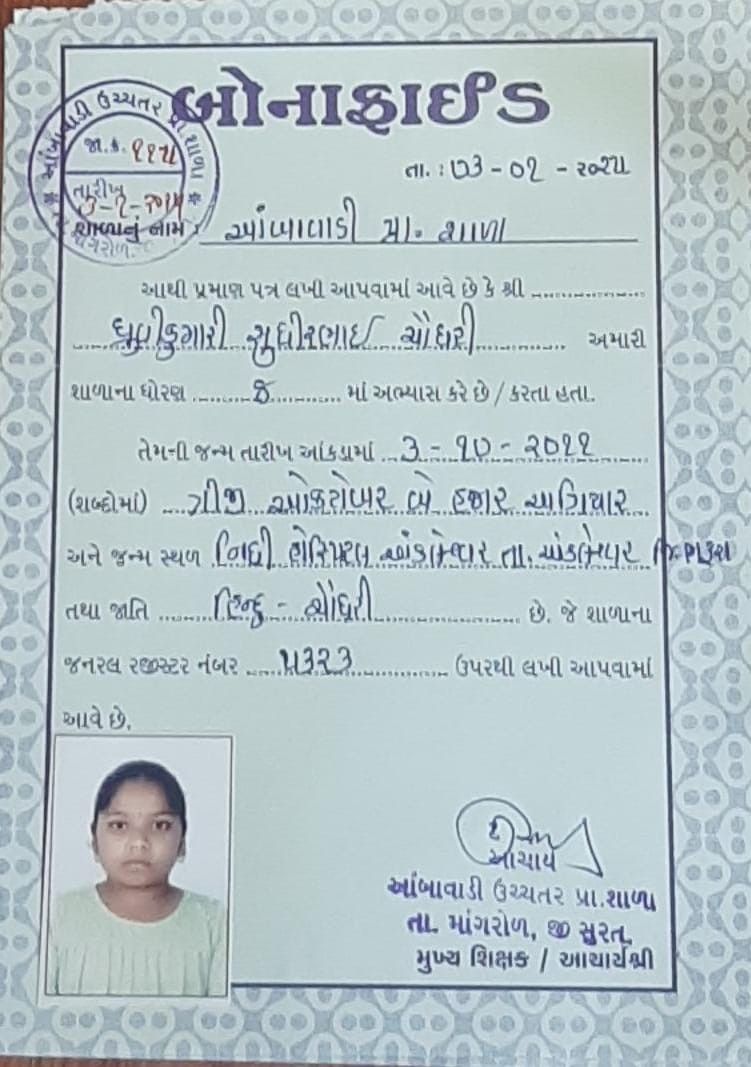 બોનાફાઈડ
આંબાવાડી ઉચ્ચતર પ્રા. શાળા
જા.ક્ર. ૧૧૫
તારીખ
તા. : ૦૩-૦૧-૨૦૨૫
શાળાનું નામ : આંબાવાડી પ્રા. શાળા
આથી પ્રમાણ પત્ર લખી આપવામાં આવે છે કે શ્રી
ધ્રુવીકુમારી સુધીરભાઈ ચૌધરી અમારી
શાળાના ધોરણ ૪ માં અભ્યાસ કરે છે / કરતા હતા.
તેમની જન્મ તારીખ આંકડામાં ૩-૧૦-૨૦૧૧
(શબ્દોમાં) ત્રીજી ઓકટોબર બે હજાર અગિયાર
અને જન્મ સ્થળ નિધી હોસ્પિટલ અંકલેશ્વર તા. અંકલેશ્વર જિ. ભરૂચ
તથા જાતિ હિન્દુ - ચૌધરી છે. જે શાળાના
જનરલ રજીસ્ટર નંબર ૫૩૨૩ ઉપરથી લખી આપવામાં
આવે છે.
આચાર્ય
આંબાવાડી ઉચ્ચતર પ્રા.શાળા
તા. માંગરોળ, જી સુરત.
મુખ્ય શિક્ષક / આચાર્યશ્રી